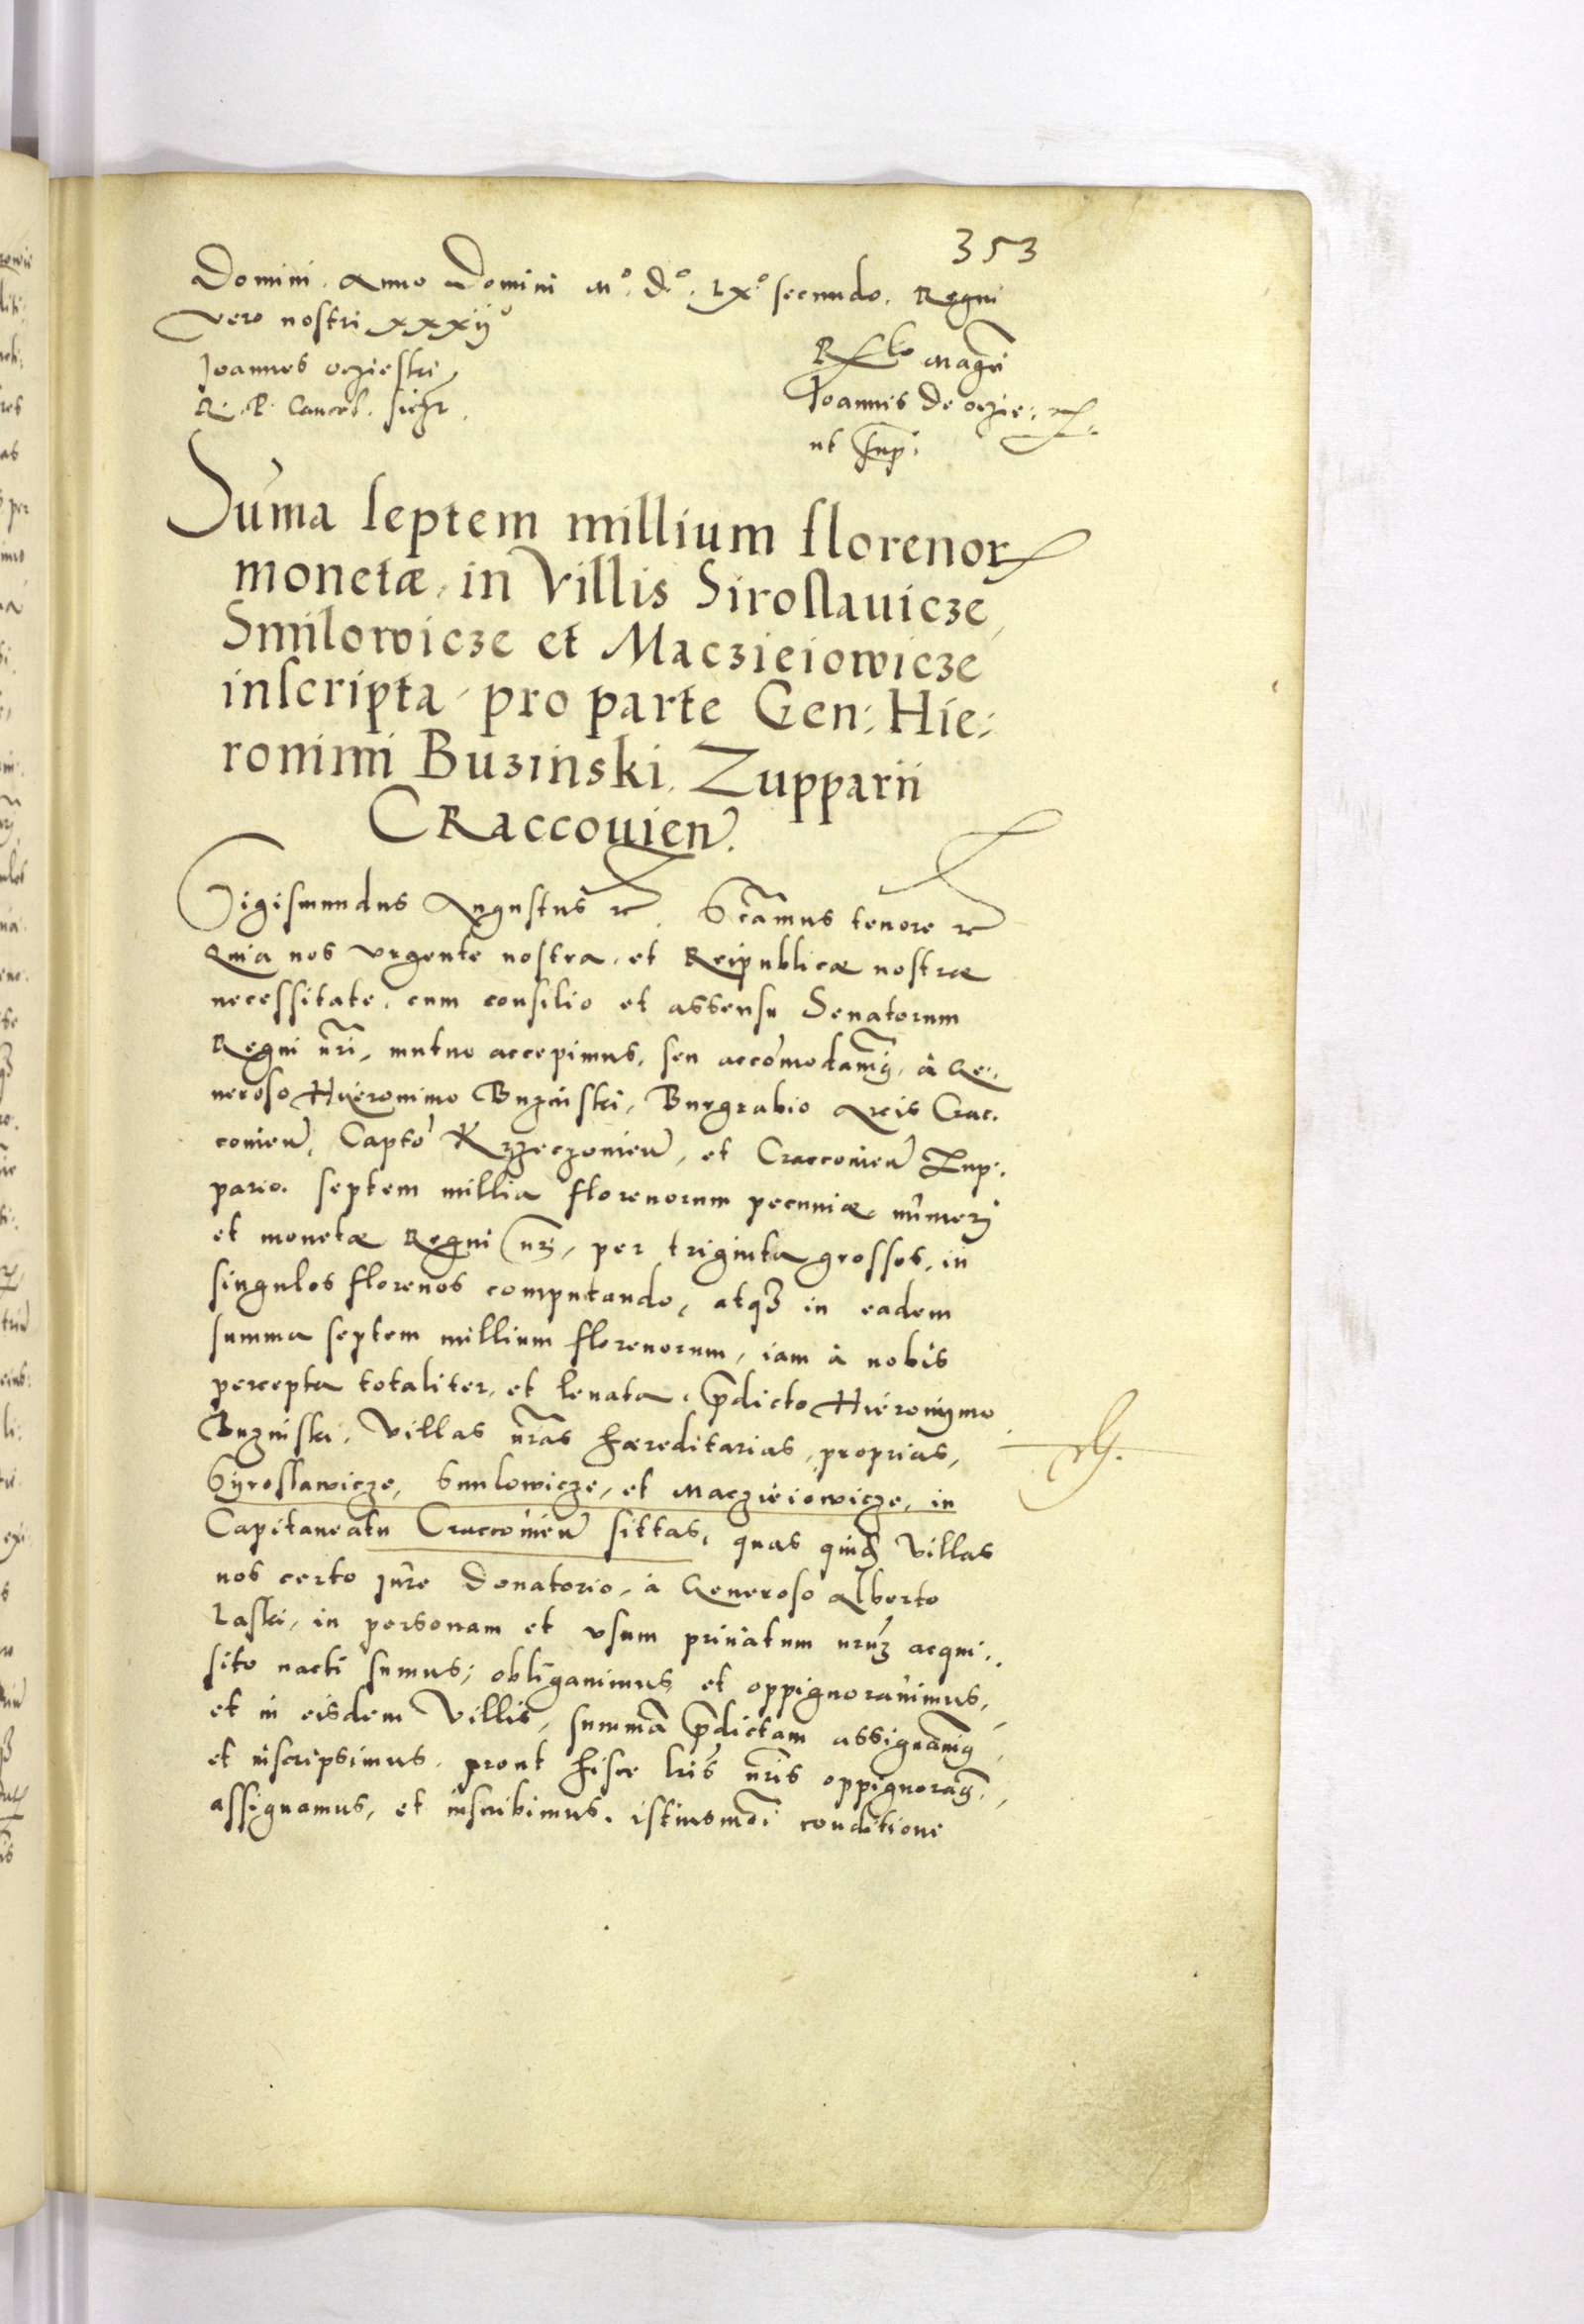 353
Domini. Anno Domini Mº. Dº. Lxº. secundo. Regni
vero nostri xxxiijº
Joannes oczieski
R. P. Cancel. sśzt.
Rlo Magci
Joannis de oczie: rc.
ut sup:
Suma septem millium florenor
monetæ, in Villis Siroslauicze,
Smilowicze et Macziejowicze
inscripta, pro parte Gen: Hie:
ronimi Buzinski, Zupparii
CRaccouien.
Sigismundus Augustus rc. Sicamus tenore rc
Quia nos urgente nostra, et Reipublicæ nostræ
necessitate, cum consilio et assensu Senatorum
Regni nri, mutuo accepimus, seu accomodauimus, à Ge:
neroso Hieronimo Buzinski, Burgrabio Arcis Crac:
couien, Capto Krzeczouien, et Craccouien Zup:
pario. septem millia florenorum pecuniæ, numeri
et monetæ Regni nri, per triginta grossos, in
singulos florenos computando, atqz in eadem
summa septem millium florenorum, iam à nobis
percepta totaliter, et leuata, pdicto Hieronymo
Buzinski, Villas nras hæreditarias, proprias,
Syroslawicze, Smilowicze, et Macziejowicze, in
Capitaneatu Craccouien sittas, quas quidem Villas
nos certo jure Donatorio, à Generoso Alberto
Laski, in personam et usum priuatum nrum acqui:
sito nacti sumus; obligauimus et oppignorauimus,
et in eisdem Villis, summa pdictam assignauimus,
et inscripsimus, prout hisce lris nris oppignoramus,
assignamus, et inscribimus, istiusmodi conditione